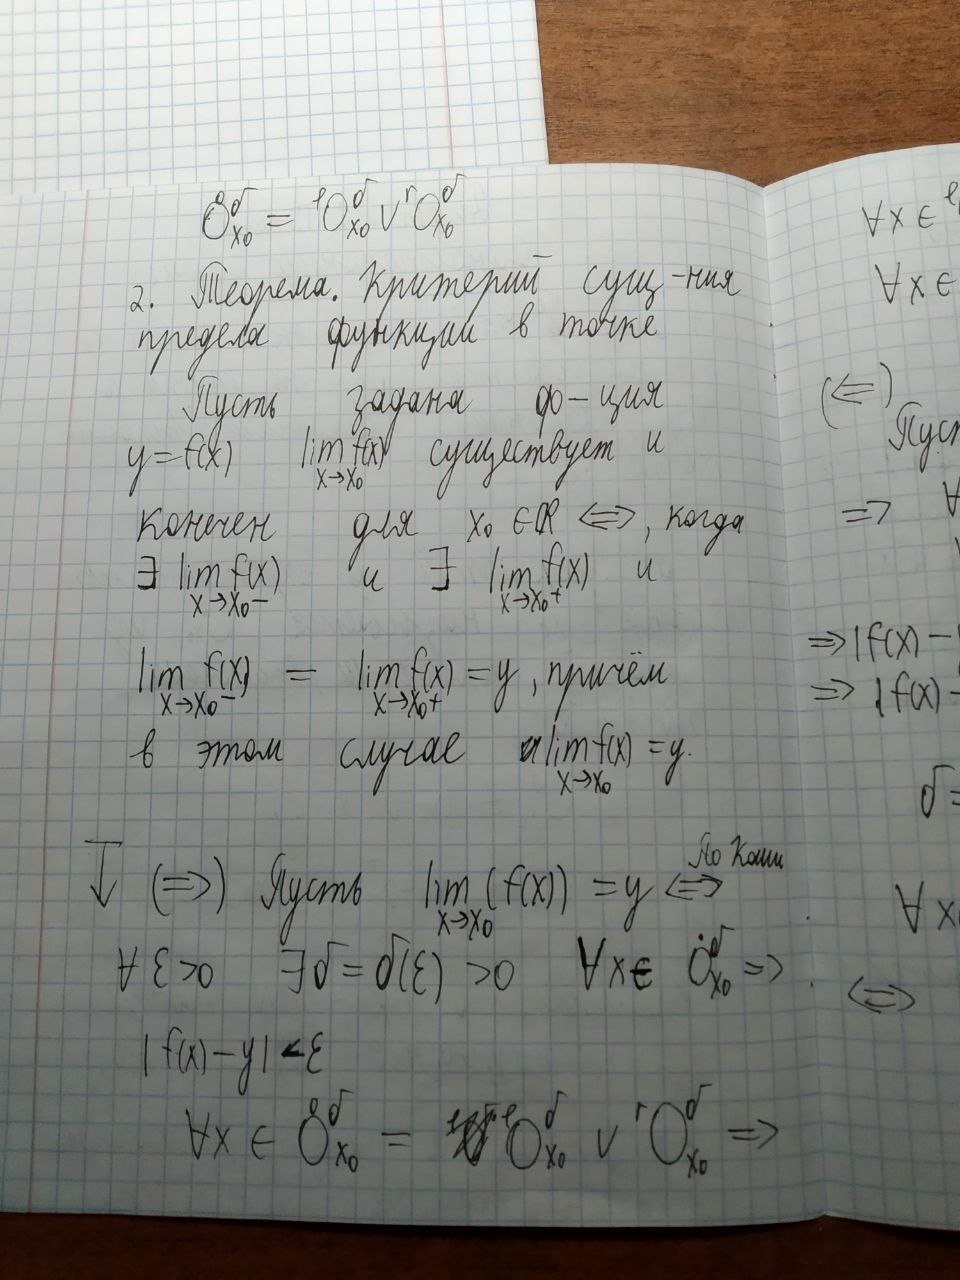 O̊^δ_{x₀} = ˡO^δ_{x₀} ∨ ʳO^δ_{x₀}
2. Теорема. Критерий сущ-ния
предела функции в точке
Пусть задана ф-ция
y=f(x) lim_{x→x₀} f(x) существует и
конечен для x₀ ∈ ℝ ⇔, когда
∃ lim_{x→x₀-} f(x) и ∃ lim_{x→x₀+} f(x) и
lim_{x→x₀-} f(x) = lim_{x→x₀+} f(x) = y, причём
в этом случае lim_{x→x₀} f(x) = y.
(⇒) Пусть lim_{x→x₀} (f(x)) = y ⇔ По Коши
∀ ε>0 ∃δ=δ(ε)>0 ∀x∈ Ȯ^δ_{x₀} ⇒
|f(x)-y|<ε
∀x ∈ O̊^δ_{x₀} = ˡO^δ_{x₀} ∨ ʳO^δ_{x₀} ⇒
∀x∈
∀x∈
(⇐)
⇒
⇒|f(x)-
⇒ |f(x)-
δ=
∀x
⇔